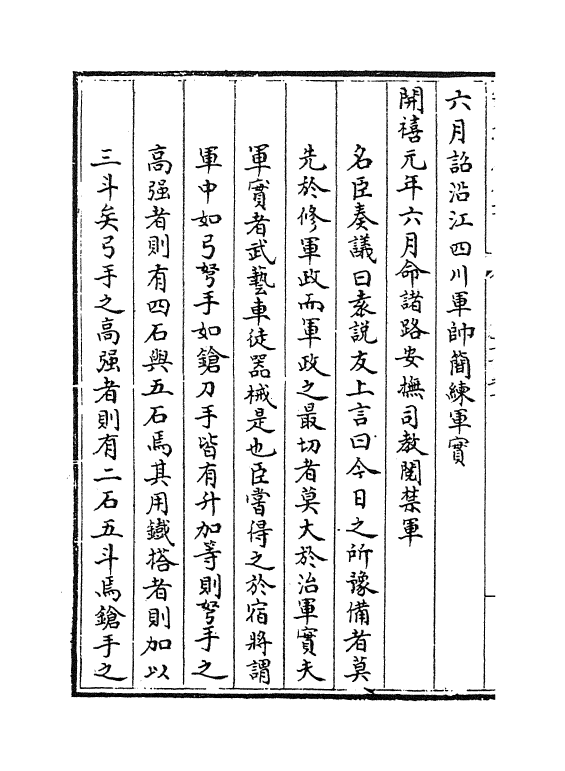 六月詔沿江四川軍帥簡練軍實
開禧元年六月命諸路安撫司教閱禁軍
名臣奏議曰袁說友上言曰今日之所豫備者莫
先於修軍政而軍政之最切者莫大於治軍實夫
軍實者武藝車徒器械是也臣嘗得之於宿將謂
軍中如弓弩手如鎗刀手皆有升加等則弩手之
高强者則有四石與五石焉其用鐵搭者則加以
三斗矣弓手之高强者則有二石五斗焉鎗手之